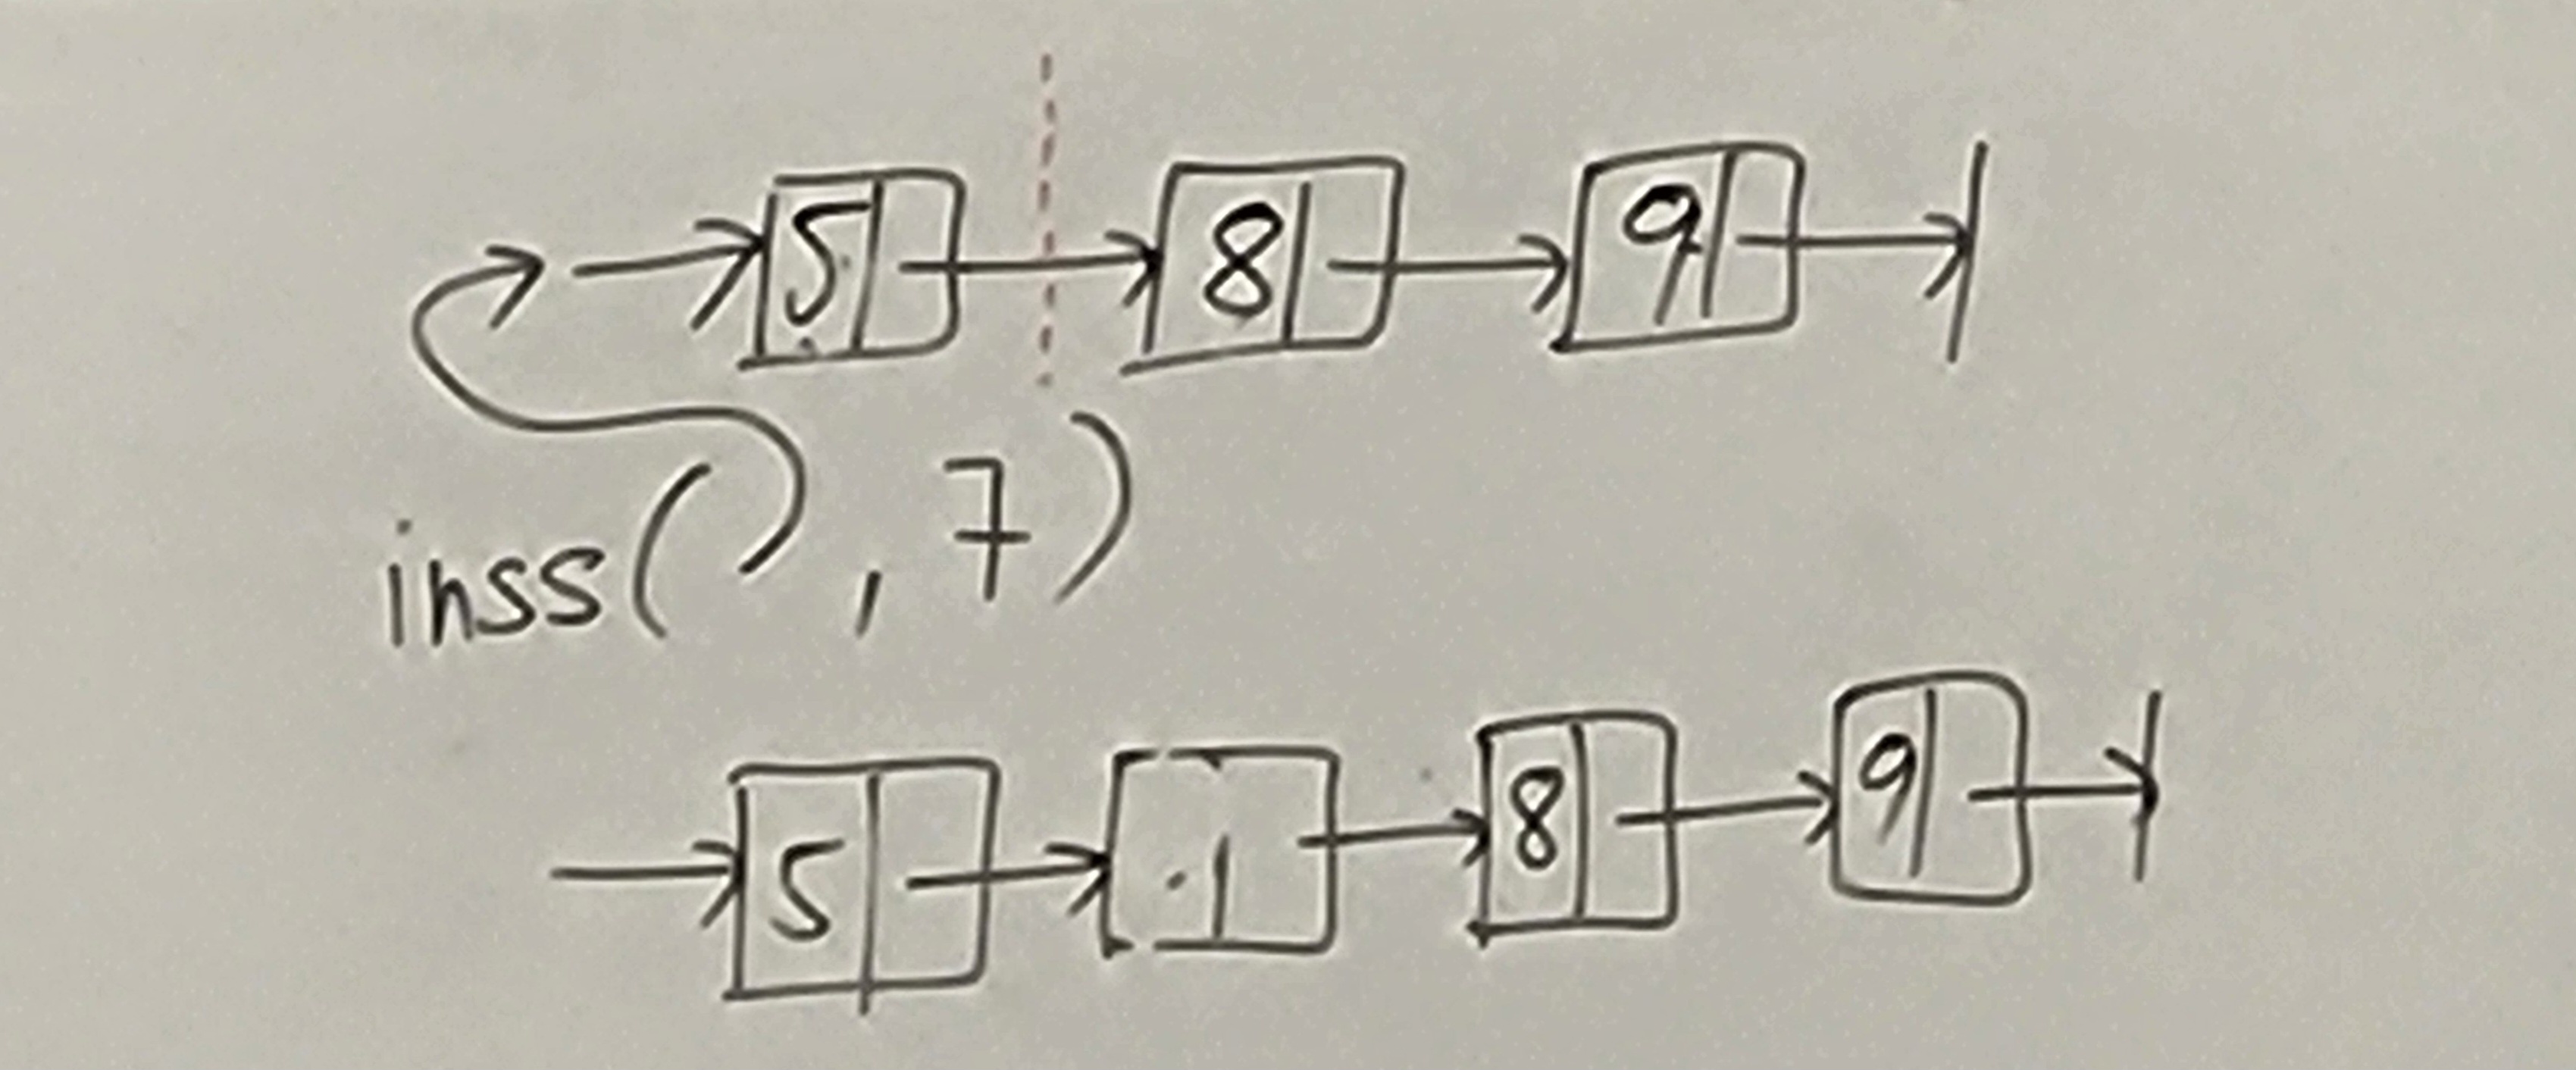 5 8 9
inss( , 7)
5 8 9